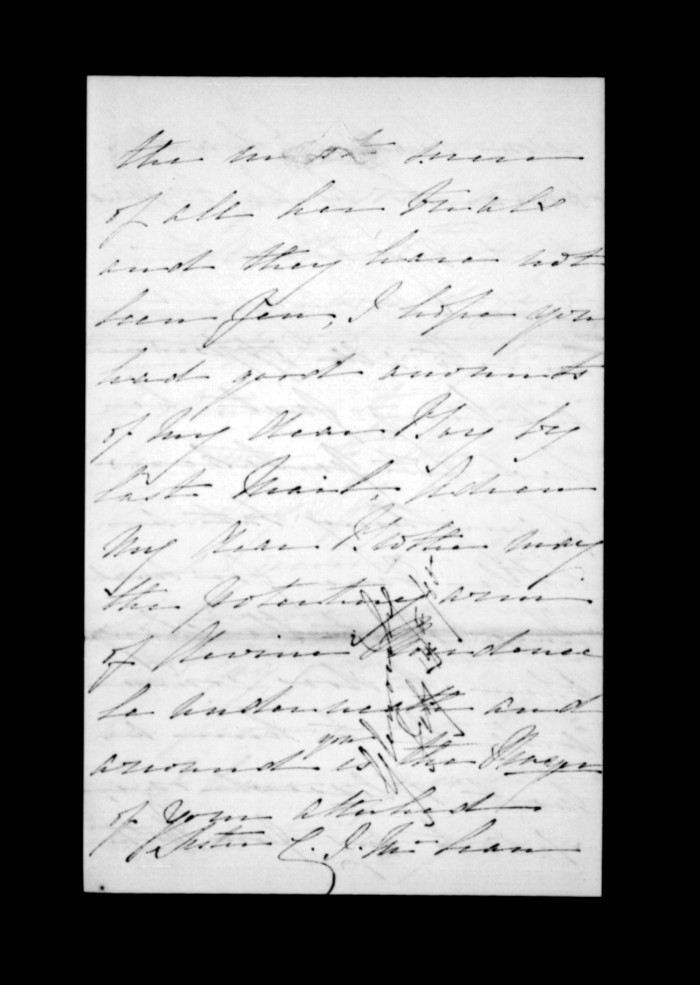 the most severe
of all her trials
and they have not
been few, I hope you
had good accounts
of my dear Boy by
last Mail, Adieu
My dear Brother may
the protecting arm
of Devine Providence
be underneath and
around you is the Prayer
of your attached
Sister C. I. McLean